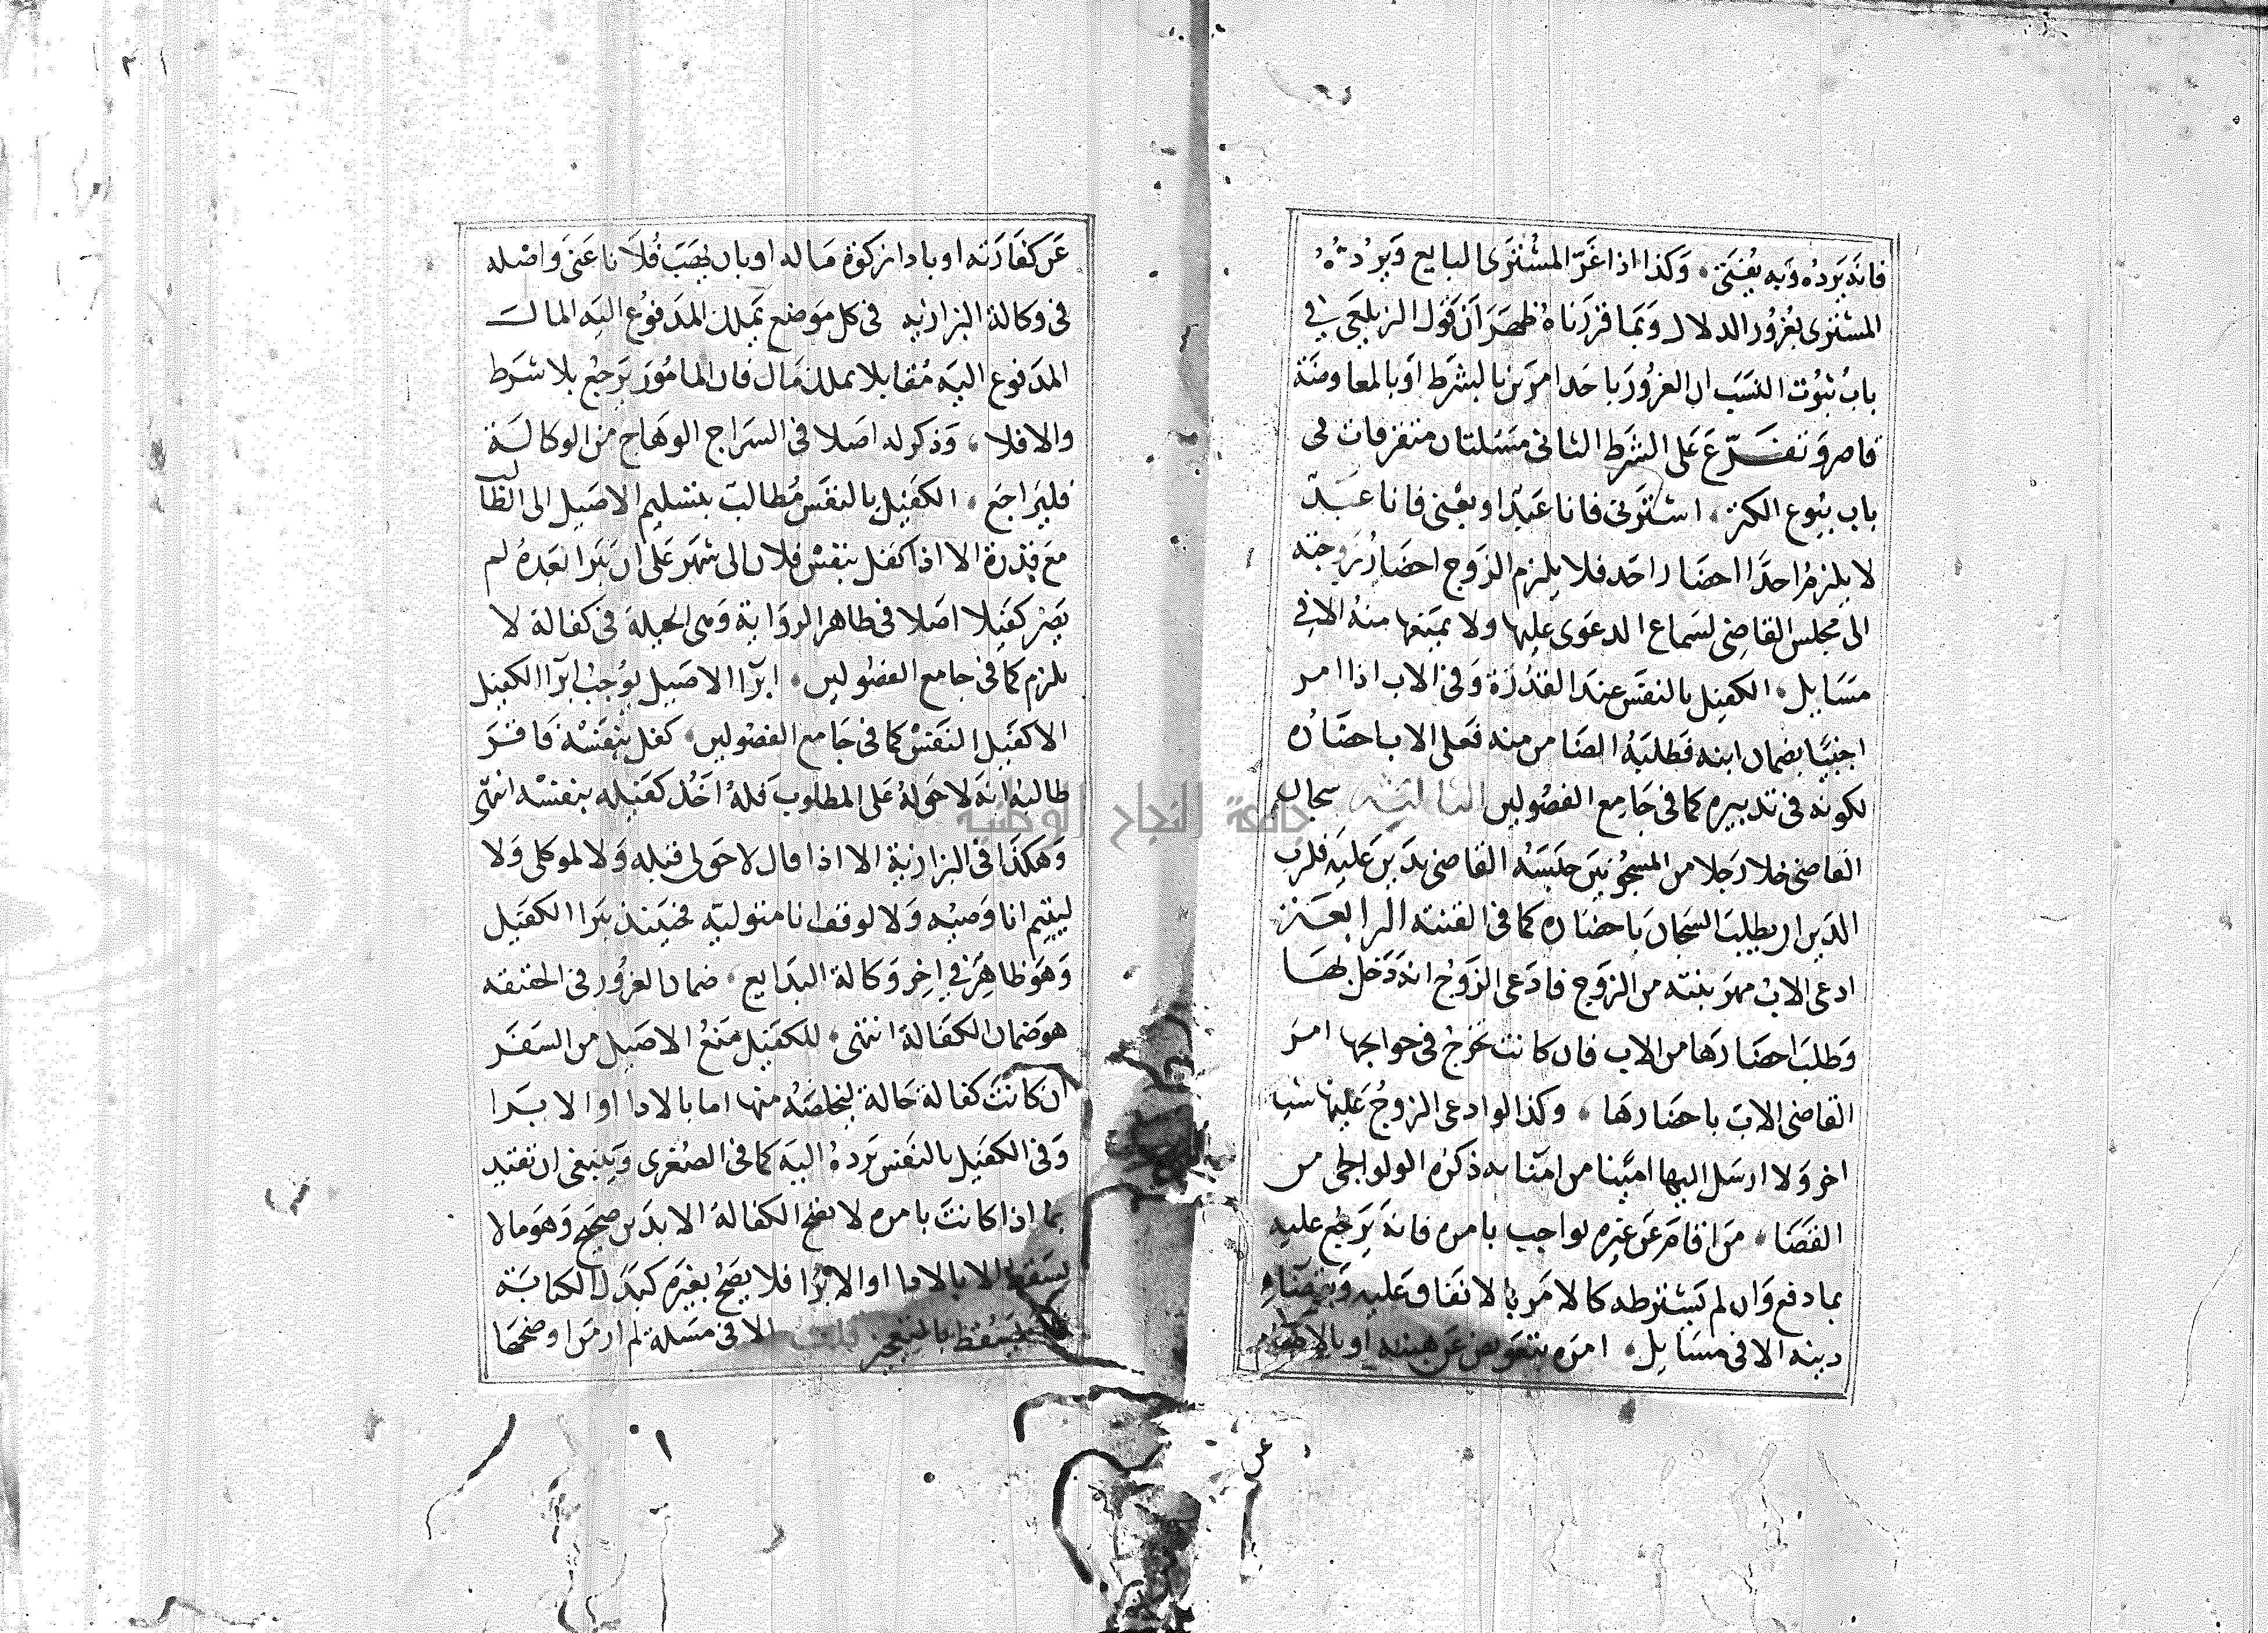 فانه يرده وبه يفتى، وكذا اذا غر المشترى البايع ويرده
المشترى بغرور الدلال وبما قررناه ظهر ان قول الزيلعى في
باب ثبوت النسب ان الغرور باحد امرين بالشرط او بالمعاوضة
قاصر وتفرع على الشرط الثانى مسئلتان متفرقات فى
باب بيوع الكنز، اشترنى فانا عبد او بعنى فانا عبد
لا يلزم احدا احضار احد فلا يلزم الزوج احضار زوجته
الى مجلس القاضى لسماع الدعوى عليها ولا يمنعها منه الا في
مسايل، الكفيل بالنفس عند القدرة وفى الاب اذا امر
اجنبيا بضمان ابنه فطلبه الضامن منه فعلى الاب احضاره
لكونه فى تدبيره كما فى جامع الفصولين الثالثة سجان
القاضى خلا رجلا من المسجونين حبسه القاضى بدين عليه فلرب
الدين ان يطلب السجان باحضاره كما فى القنية الرابعة
ادعى الاب مهر بنته من الزوج فادعى الزوج انه دخل بها
وطلب احضارها من الاب فان كانت تخرج فى حوايجها امر
القاضى الاب باحضارها، وكذا لو ادعى الزوج عليها شيا
اخر ولا ارسل اليها امينا من امنايه ذكره الولوالجى من
القضا، من اقام عن غيره بواجب بامره فانه يرجع عليه
بما دفع وان لم يشترطه كالامر بالانفاق عليه وبقضاء
دينه الا فى مسايل، امره بتعويض عن هبته او بالاطعام
عن
عن كفارته او باداز كوة ماله او بان يهب فلانا عنى واصله
فى وكالة البزازيه فى كل موضع يملك المدفوع اليه المال
المدفوع اليه مقابلا بملك مال فان المامور يرجع بلا شرط
والا فلا، وذكر له اصلا فى السراج الوهاج من الوكالة
فليراجع، الكفيل بالنفس مطالب بتسليم الاصيل الى الطالب
مع قدرة الا اذا كفل بنفس فلان الى شهر على ان يبرا بعده لم
يصر كفيلا اصلا فى ظاهر الرواية وهى الحيلة فى كفالة لا
يلزم كما فى جامع الفصولين، ابرا الاصيل يوجب ابرا الكفيل
الا كفيل النفس كما فى جامع الفصولين، كفل بنفسه فاقر
طالبه انه لا حق له على المطلوب فله اخذ كفيله بنفسه انتهى
وهكذا فى البزازية الا اذا قال لا حق لى قبله ولا لموكلى ولا
ليتيم انا وصيه ولا لوقف انا متوليه فحينئذ يبرا الكفيل
وهو ظاهر في اخر وكالة البدايع، ضمان الغرور فى الحقيقه
هو ضمان الكفالة انتهى، للكفيل منع الاصيل من السفر
ان كانت كفالة حالة ليخلصه منها اما بالادا او الابرا
وفى الكفيل بالنفس يرده اليه كما فى الصغرى وينبغى ان تقيد
بما اذا كانت بامره لا تصح الكفالة الا بدين صحيح وهو ما لا
يسقط الا بالادا او الابرا فلا يصح بغيره كبدل الكتابة
يسقط بالتعجيز قلت الا فى مسلة لم ار من اوضحها